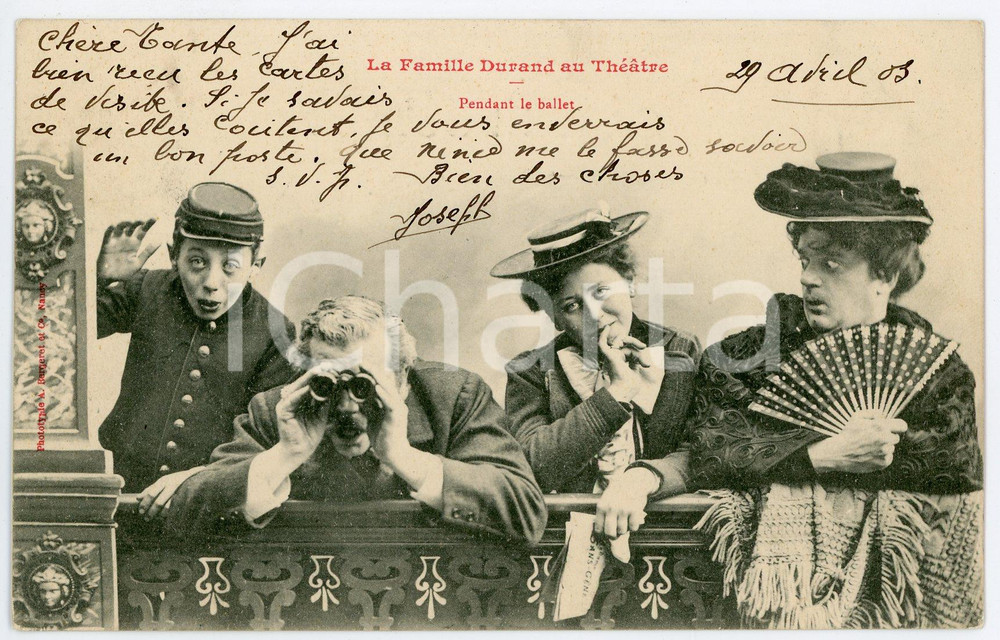 Chère Tante, J'ai
bien reçu les cartes
de visite. Si je savais
ce qu'elles coûtent, je vous enverrais
un bon poste. Que Ninie me le fasse savoir
S. V. P. Bien des choses
Joseph
29 Avril 03.
La Famille Durand au Théâtre
Pendant le ballet
Phototypie A. Bergeret et Cie, Nancy
iCharta